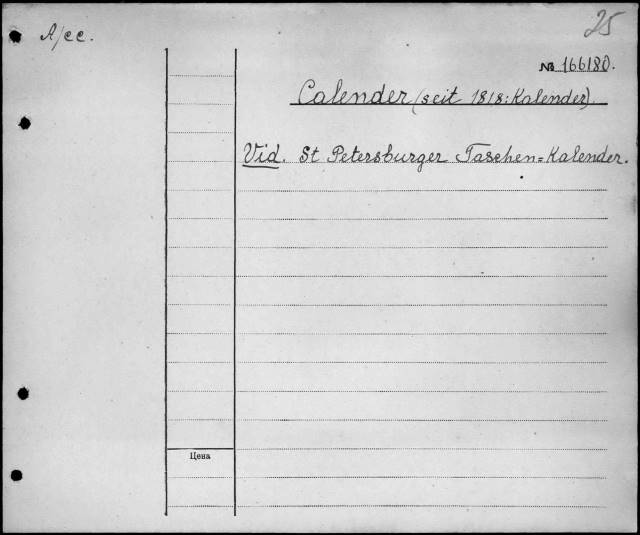 25
A/cc.
№ 166180.
Calender (seit 1818: Kalender).
Vid. St Petersburger Taschen=Kalender.
Цена